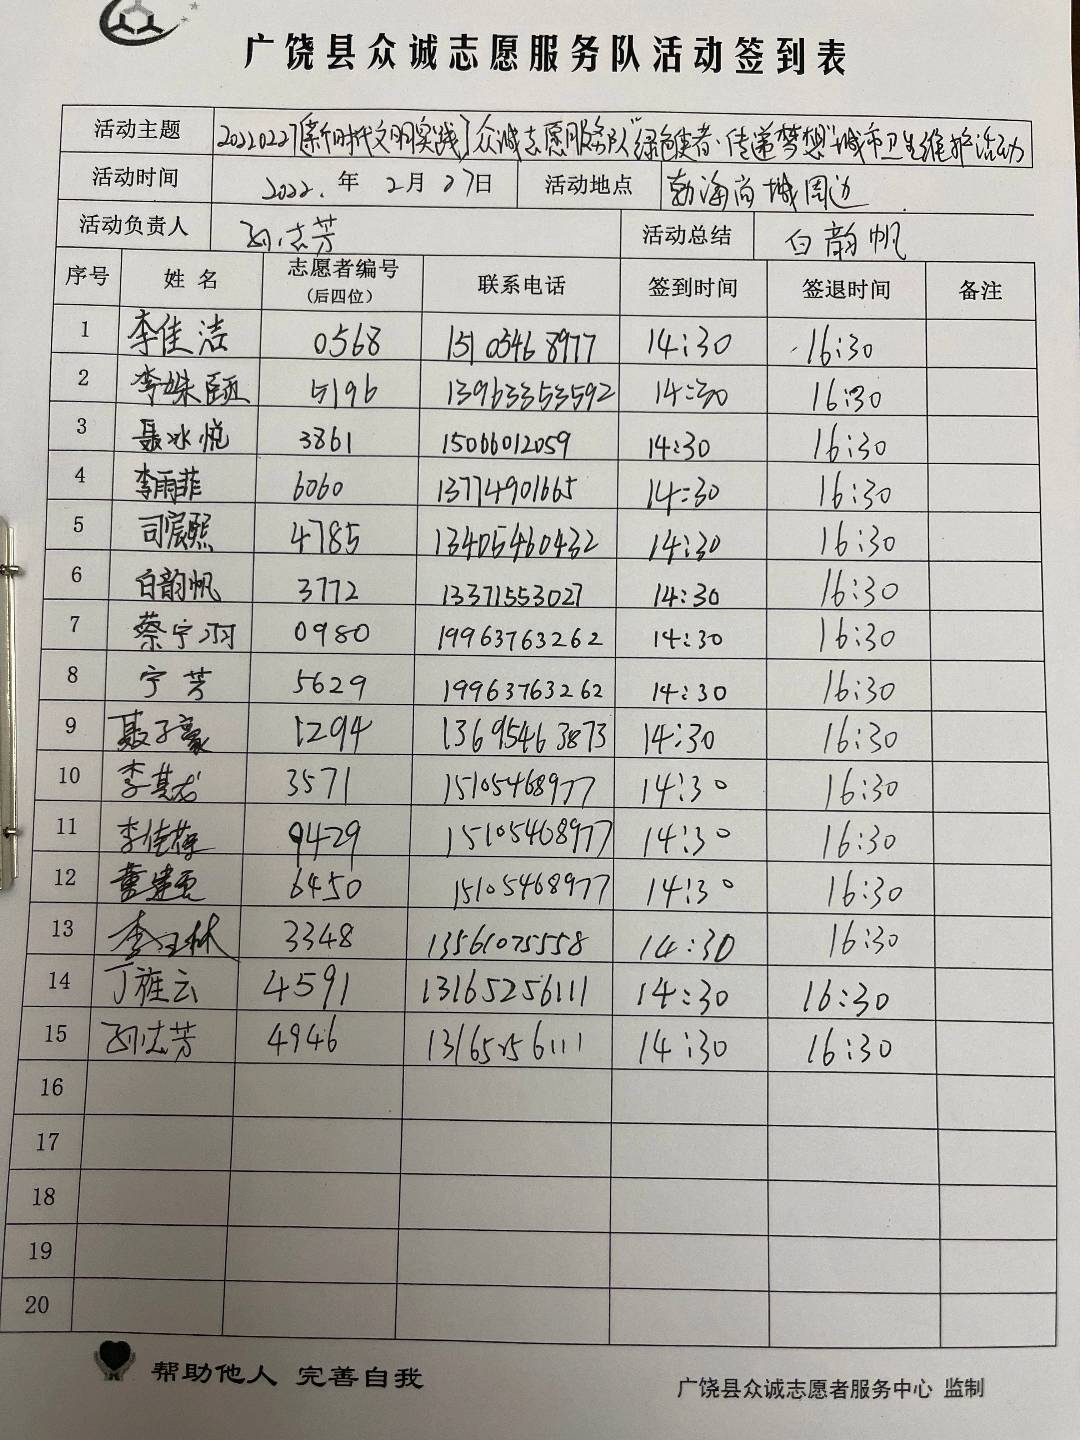 广饶县众诚志愿服务队活动签到表
活动主题 20220227[新时代文明实践]众诚志愿服务队"绿色使者·传递梦想"城市卫生维护活动
活动时间 2022.年2月27日 活动地点 渤海尚城周边
活动负责人 孙志芳 活动总结 白韵帆
序号 姓名 志愿者编号(后四位) 联系电话 签到时间 签退时间 备注
1 李佳洁 0568 15105468977 14:30 16:30
2 李姝颐 5196 13963353592 14:30 16:30
3 聂冰悦 3861 15066012059 14:30 16:30
4 李雨菲 6060 13774901665 14:30 16:30
5 司宸熙 4785 13405460432 14:30 16:30
6 白韵帆 3772 13371553027 14:30 16:30
7 蔡宁羽 0980 19963763262 14:30 16:30
8 宁芳 5629 19963763262 14:30 16:30
9 聂子豪 1294 13695463873 14:30 16:30
10 李其龙 3571 15105468977 14:30 16:30
11 李佳葆 9429 15105468977 14:30 16:30
12 6450 15105468977 14:30 16:30
13 李 林 3348 13561075558 14:30 16:30
14 丁雅云 4591 13165256111 14:30 16:30
15 孙志芳 4946 13165256111 14:30 16:30
16
17
18
19
20
帮助他人 完善自我
广饶县众诚志愿者服务中心 监制